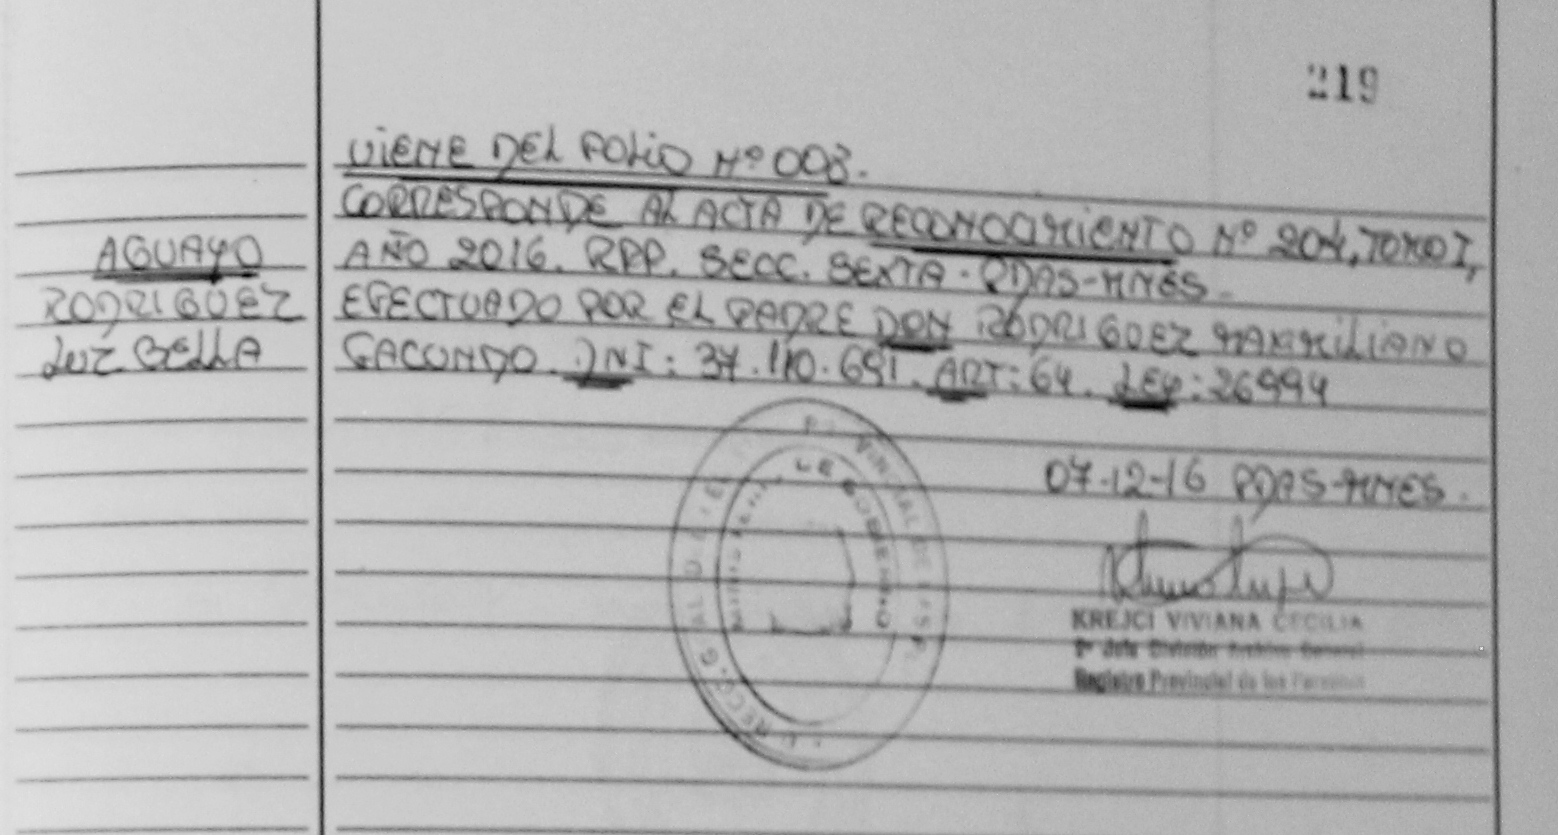 219
VIENE DEL FOLIO Nº 008.
CORRESPONDE AL ACTA DE RECONOCIMIENTO Nº 204, TOMO I,
AGUAYO
AÑO 2016. RPP. SECC. SEXTA - PDAS-MNES.
RODRIGUEZ
EFECTUADO POR EL PADRE DON RODRIGUEZ MAXIMILIANO
LUZ BELLA
FACUNDO. DNI: 37.110.691. ART: 64. LEY: 26994
07-12-16 PDAS-MNES.
KREJCI VIVIANA CECILIA
2º Jefe División Archivo General
Registro Provincial de las Personas